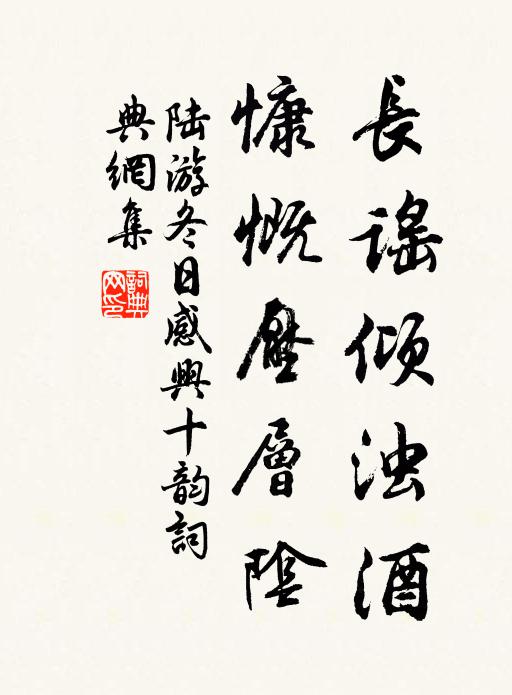 長謠倾浊酒
慷慨壓層陰
陆游冬日感興十韵詞
典網集
詞典网印